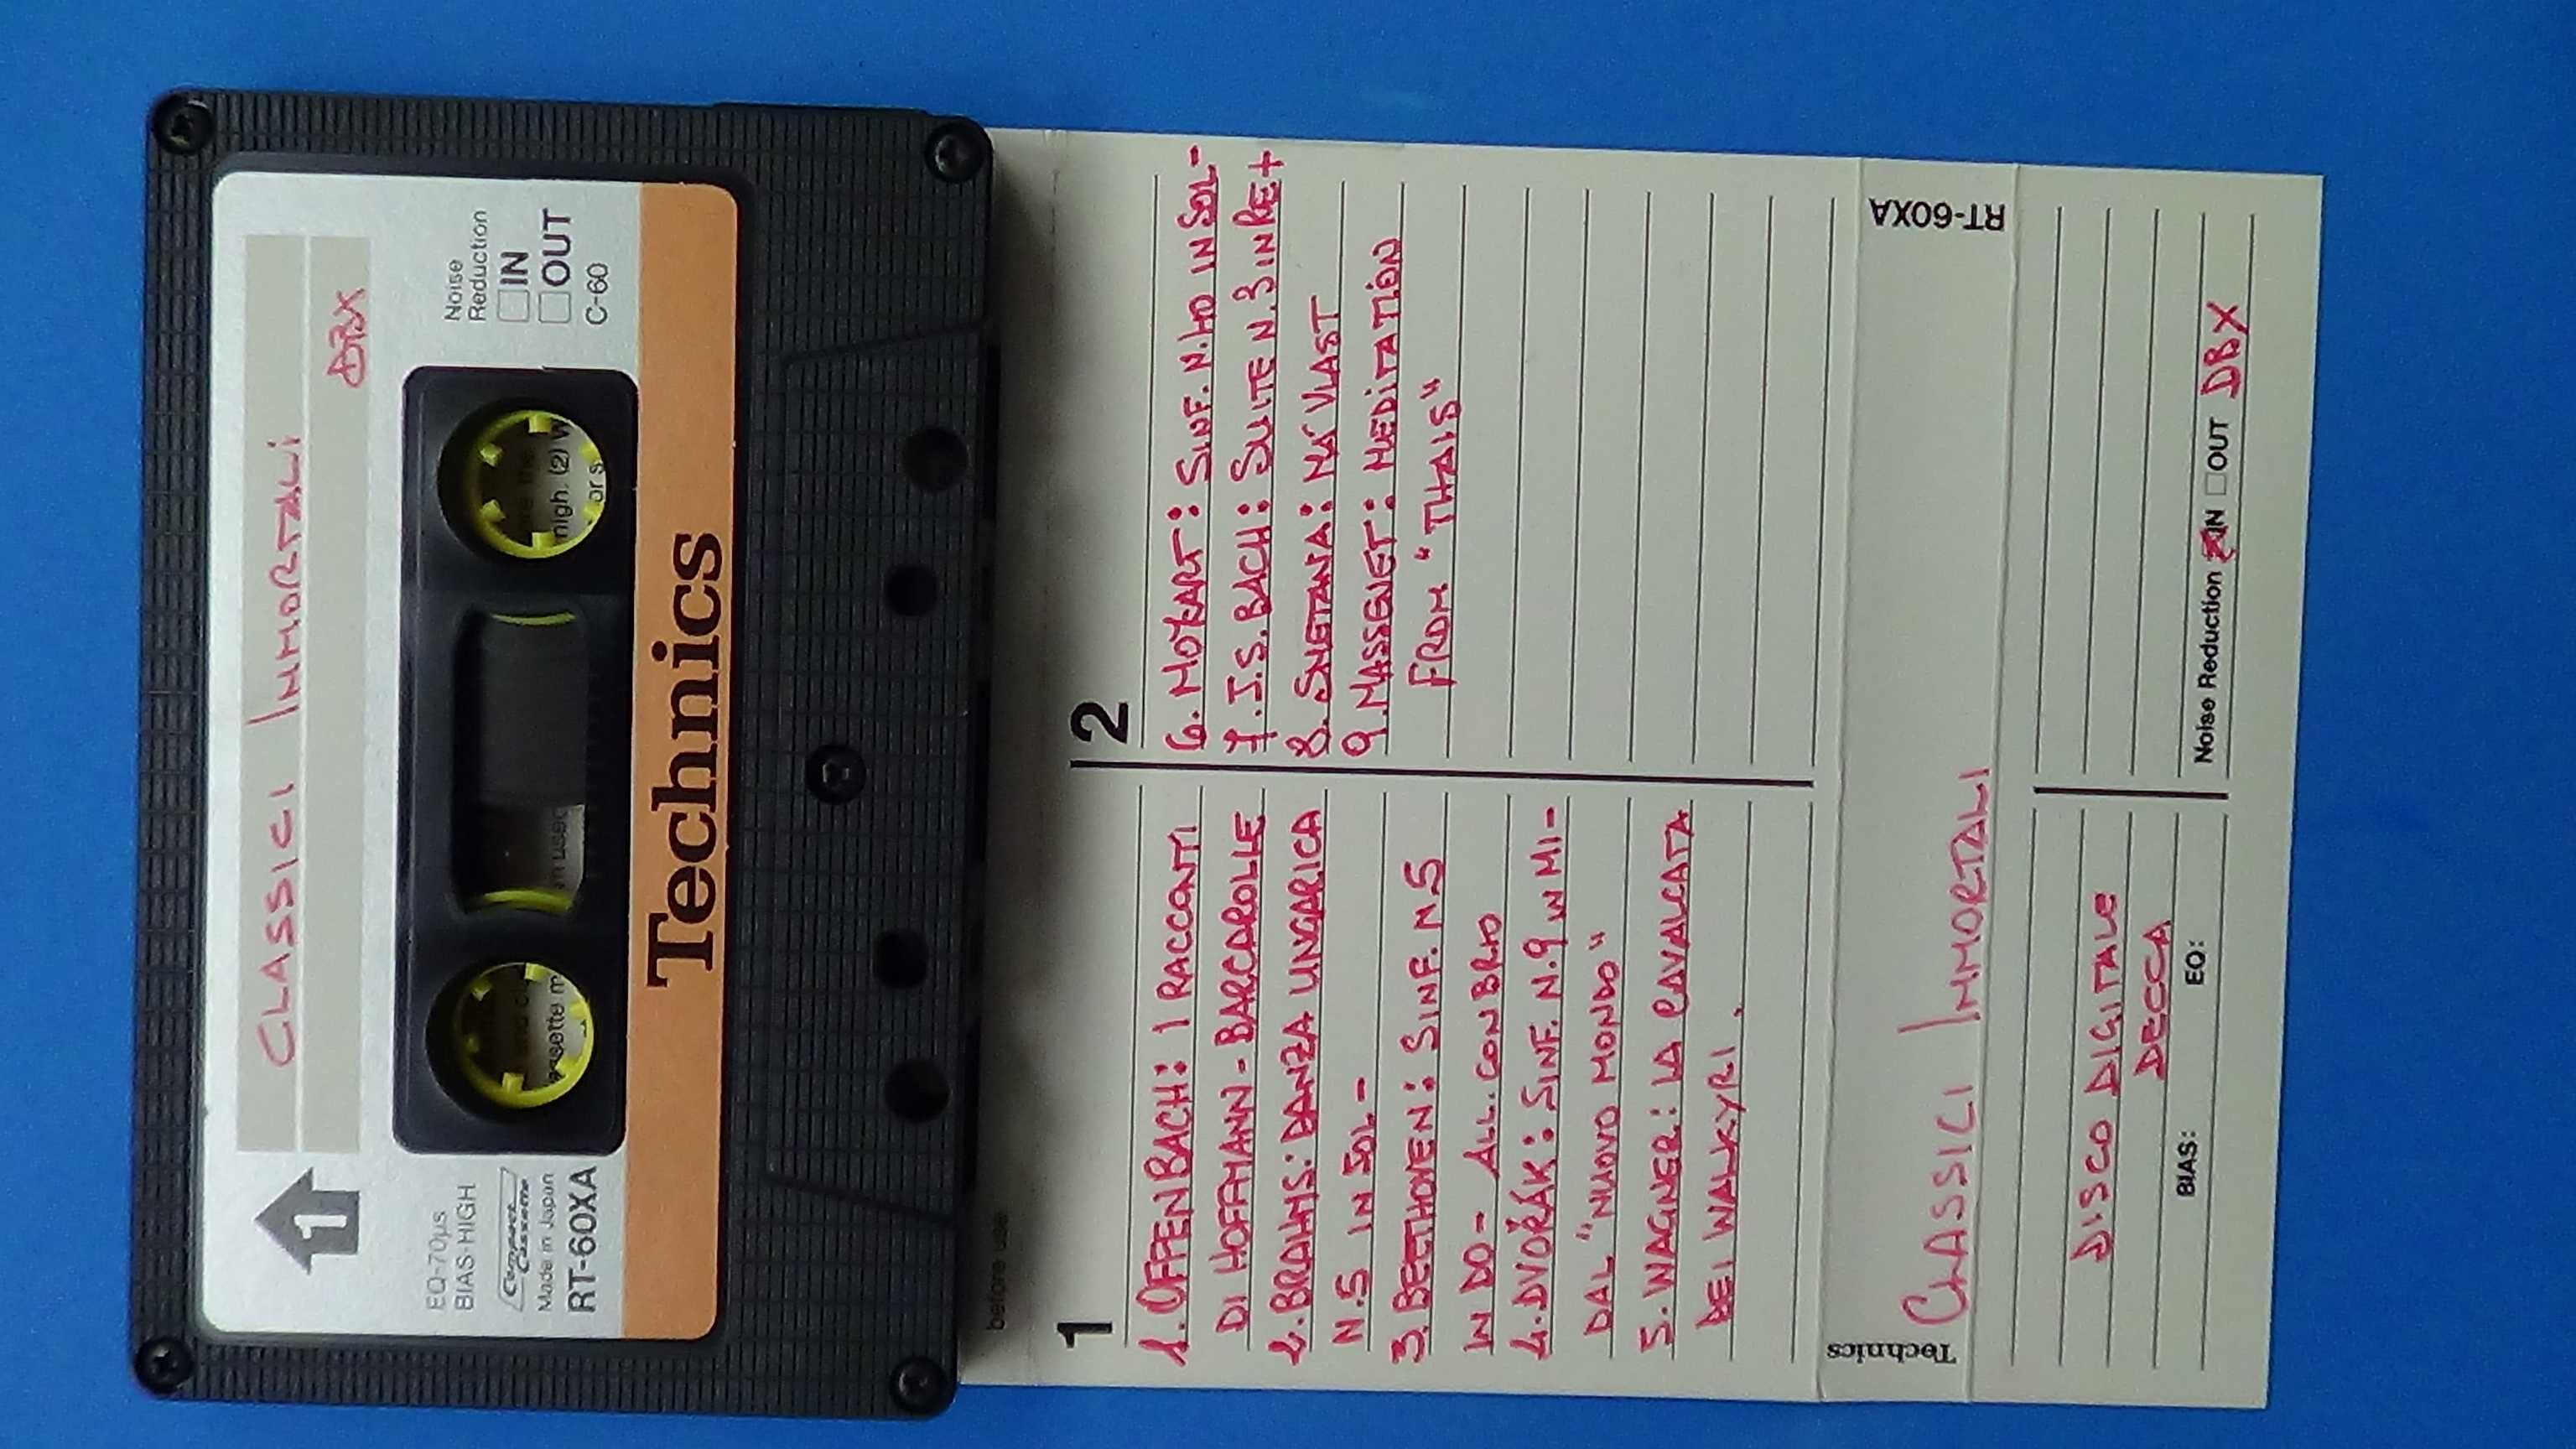 CLASSICI IMMORTALI
DBX
1
EQ-70µs
BIAS-HIGH
Compact Cassette
Made in Japan
RT-60XA
Noise
Reduction
IN
OUT
C-60
Technics
before use
1
1. OFFENBACH: I RACCONTI
DI HOFFMANN - BARCAROLLE
2. BRAHMS: DANZA UNGARICA
N.5 IN SOL-
3. BEETHOVEN: SINF. N.5
IN DO- ALL. CON BRIO
4. DVOŘÁK: SINF. N.9 IN MI-
DAL "NUOVO MONDO"
5. WAGNER: LA CAVALCATA
DEI WALKYRI.
2
6. MOZART: SINF. N.40 IN SOL-
7. J.S. BACH: SUITE N.3 IN RE+
8. SMETANA: MA' VLAST
9. MASSENET: MEDITATION
FROM "THAIS"
Technics
CLASSICI IMMORTALI
RT-60XA
DISCO DIGITALE
DECCA
BIAS: EQ:
Noise Reduction IN OUT DBX